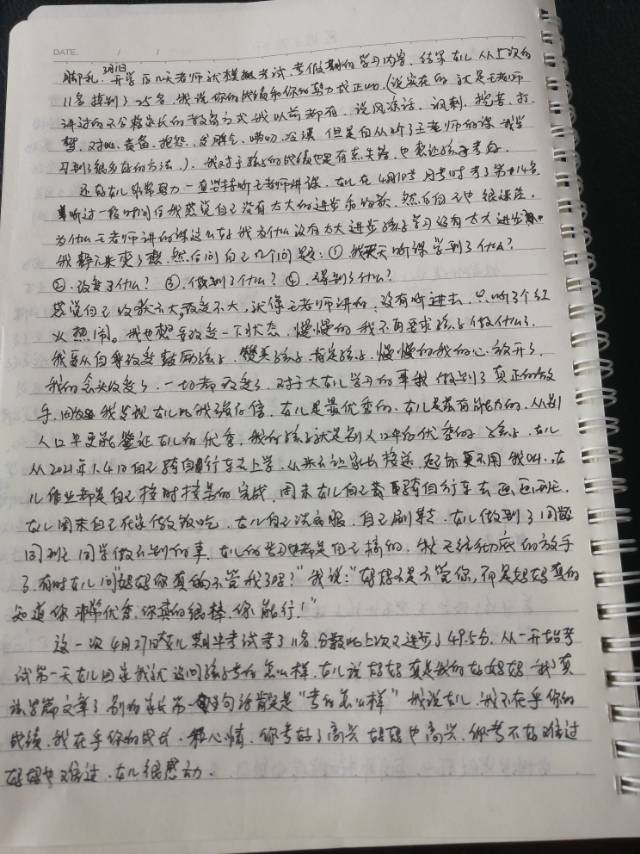 DATE. / /
3月1日
开学后几天老师就模拟考试,考假期的学习内容,结果女儿从上次的
11名掉到了25名,我说你的成绩和你的努力成正比,(说实在的就是王老师
讲过的不合格家长的教育方式我以前都有,说风凉话、讽刺、挖苦、打
骂、对比、责备、抱怨、发脾气、唠叨、冷漠 但是自从听了王老师的课我学
习到了很多好的方法.)、我对于孩子的成绩也是有点失落,
一直坚持听王老师讲课,女儿在4月10日月考时考了第14名
听过一段时间后我感觉自己没有太大的进步和收获,然后自己也很迷茫,
为什么王老师讲的课这么好我为什么没有太大进步孩子学习没有太大进步
我静下来想了想,然后问自己几个问题:①我天天听课学到了什么?
②改变了什么?③做到了什么?④得到了什么?
感觉自己收获不大,改变不大,就像王老师讲的,没有听进去,只听了个红
火热闹。我也想要改变一下状态,慢慢的我不再要求孩子做什么了,
我要从自身改变鼓励孩子,赞美孩子,肯定孩子,慢慢的我的心放开了,
我的念头改变了,一切都改变了,对于大女儿学习的事我做到了真正的放
手,我发现女儿比我强百倍,女儿是最优秀的,女儿是最有能力的,从别
人口中更能鉴证女儿的优秀,我的孩子就是别人口中的优秀的孩子,女儿
从2021年1.4日自己骑自行车去上学,从来不让家长接送,起床更不用我叫,女
儿作业都是自己按时按点的完成,周末女儿自己骑自行车去画画班,
女儿周末自己在家做饭吃,女儿自己洗衣服,自己刷鞋,女儿做到了同龄
同班同学做不到的事,女儿的学习都是自己搞的,我已经彻底的放手
了,有时女儿问"妈妈你真的不管我了吗?"我说:"妈妈不是不管你,而是妈妈真的
知道你非常优秀,你真的很棒,你能行!"
这一次4月27日女儿期中考试考了11名,分数比上次又进步了49.5分,从一开始考
试第一天女儿回来我就没问孩子考的怎么样,女儿说妈妈真是我的好妈妈
别的家长第一句话肯定是"考的怎么样"我说女儿,我不在乎你的
成绩,我在乎你的成长和心情,你考好了高兴妈妈也高兴,你考不好难过
妈妈也难过,女儿很感动.